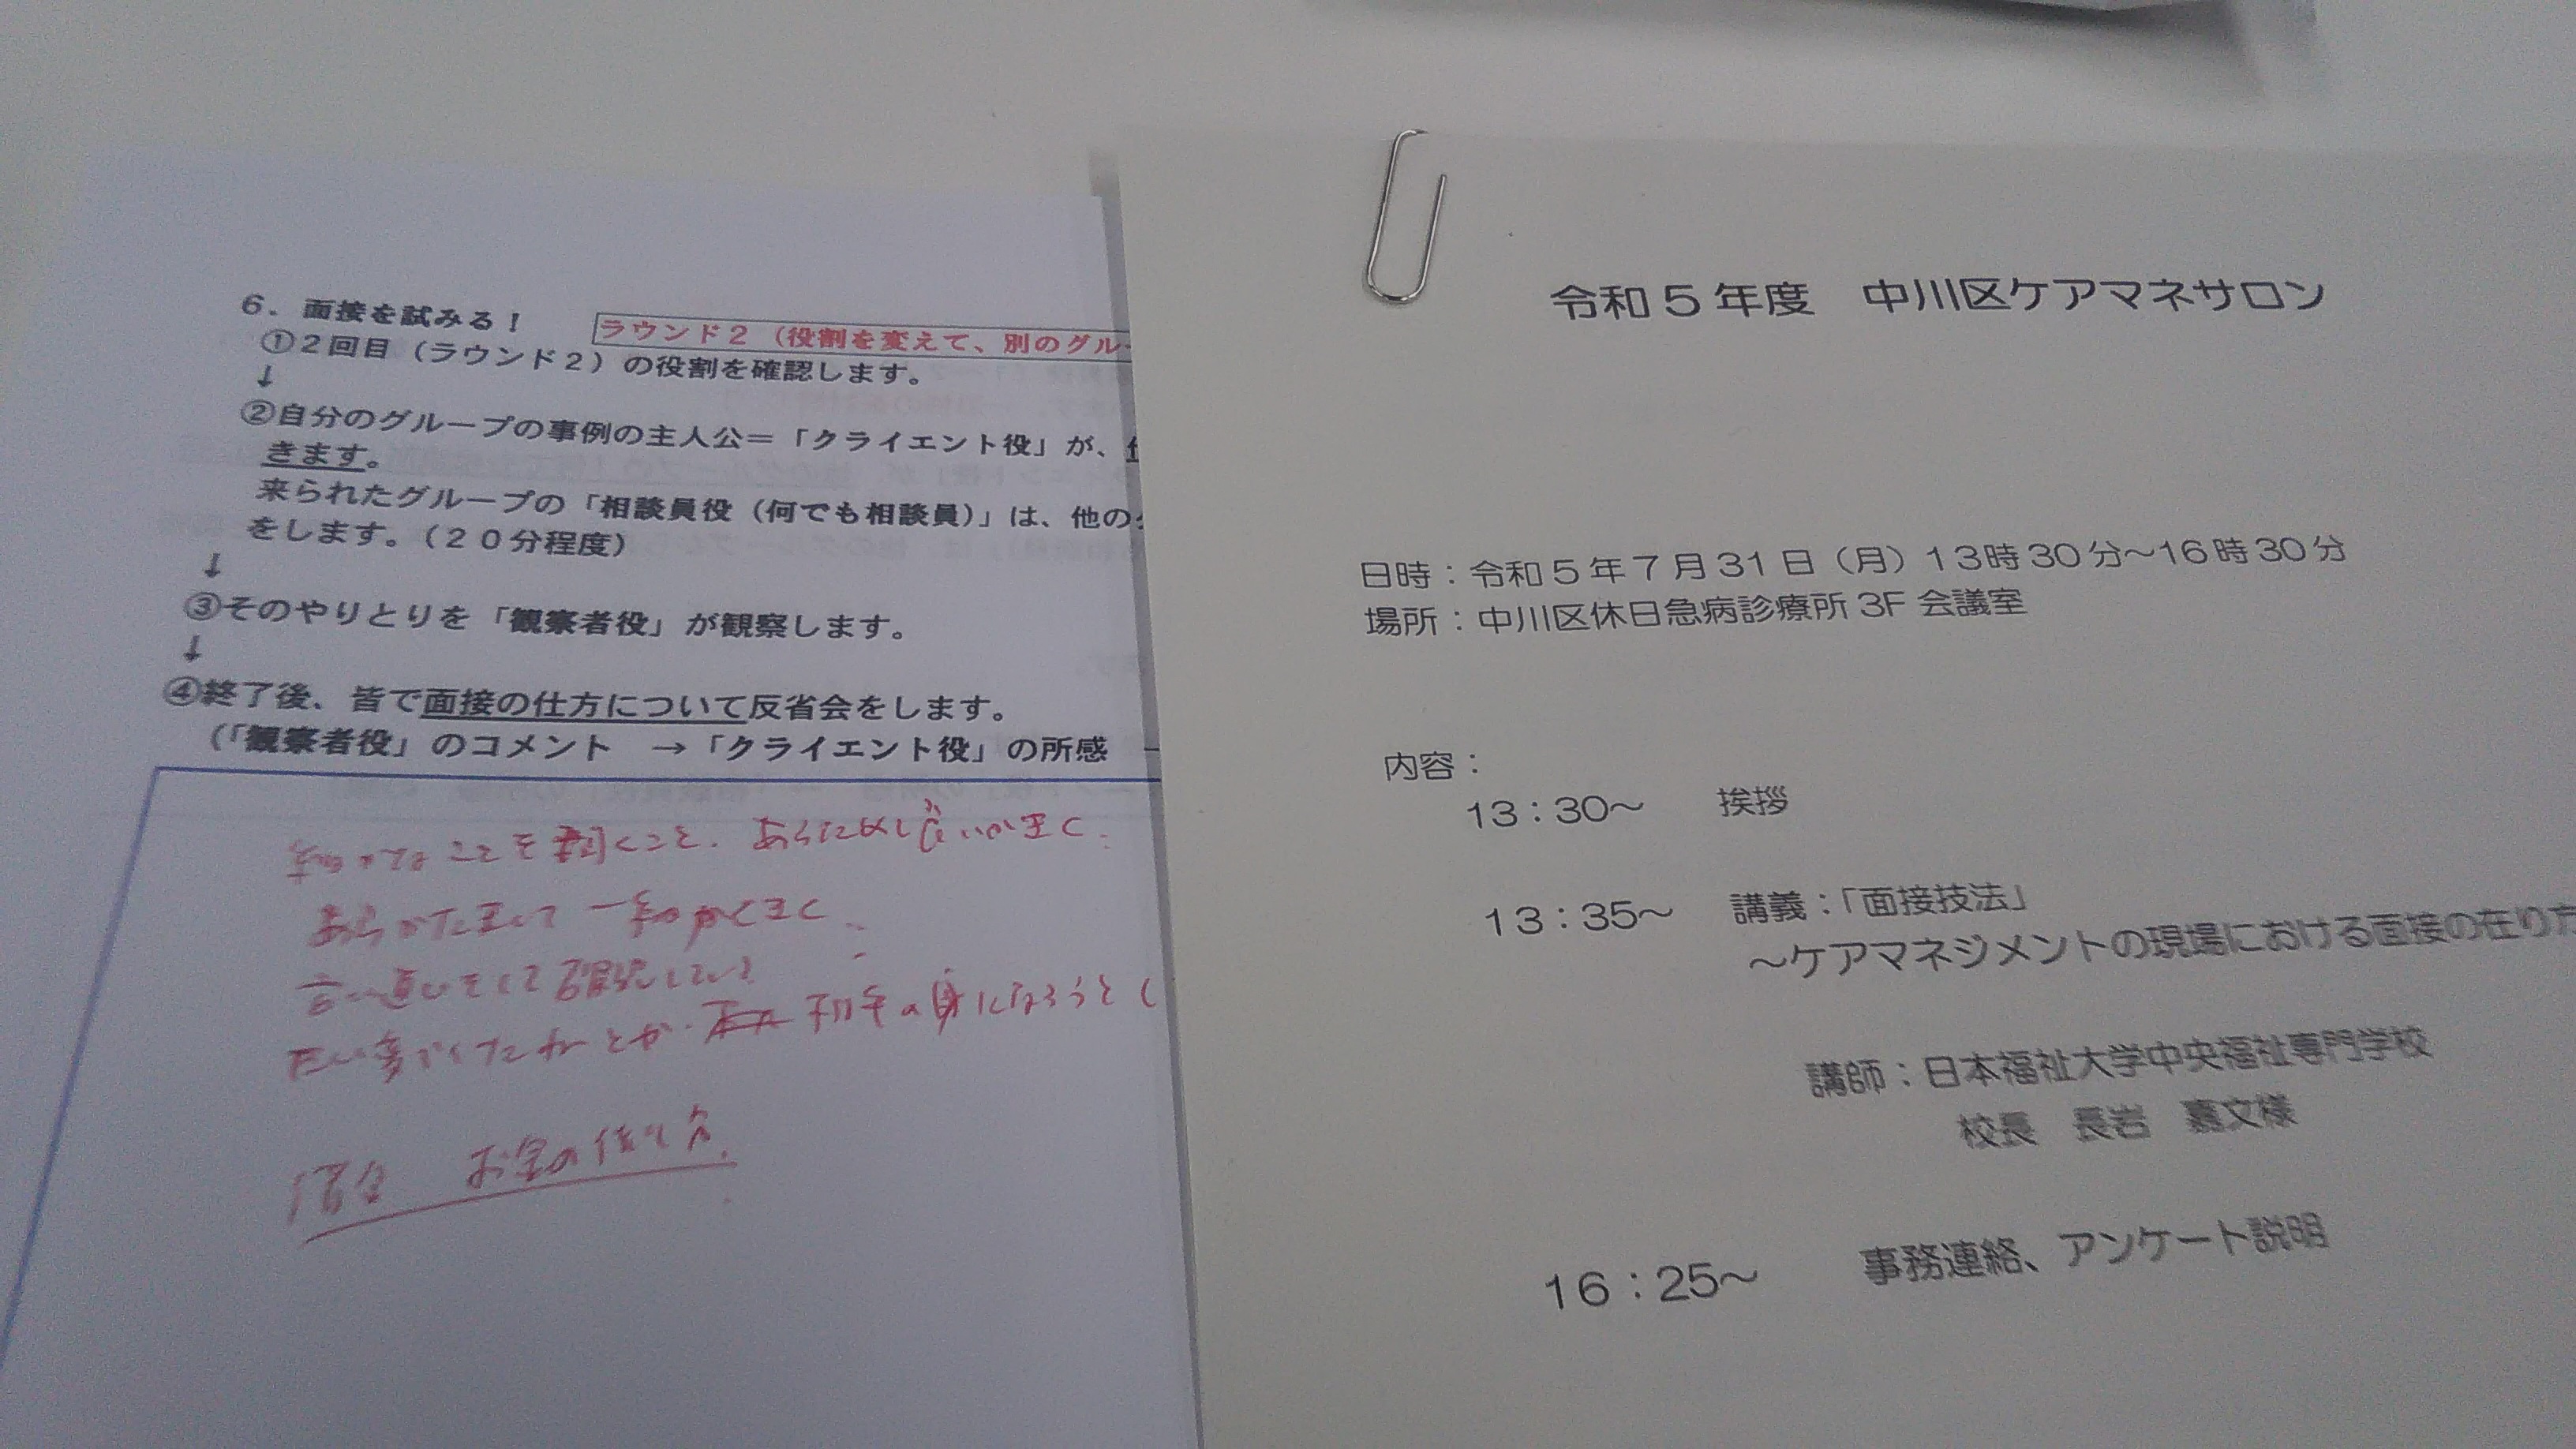 6．面接を試みる！
ラウンド２（役割を変えて、別のグル
①２回目（ラウンド２）の役割を確認します。
↓
②自分のグループの事例の主人公＝「クライエント役」が、
きます。
来られたグループの「相談員役（何でも相談員）」は、他の
をします。（２０分程度）
↓
③そのやりとりを「観察者役」が観察します。
↓
④終了後、皆で面接の仕方について反省会をします。
（「観察者役」のコメント　→「クライエント役」の所感
細かなことを聞くこと．あらためて
あらかじめ
言い直しをして確認している
とか 相手の身になろうと
借金　お金の借り方.
令和５年度　中川区ケアマネサロン
日時：令和５年７月31日（月）13時30分～16時30分
場所：中川区休日急病診療所3F 会議室
内容：
13：30～　挨拶
13：35～　講義：「面接技法」
～ケアマネジメントの現場における面接の在り方
講師：日本福祉大学中央福祉専門学校
校長　長岩　嘉文様
16：25～　事務連絡、アンケート説明